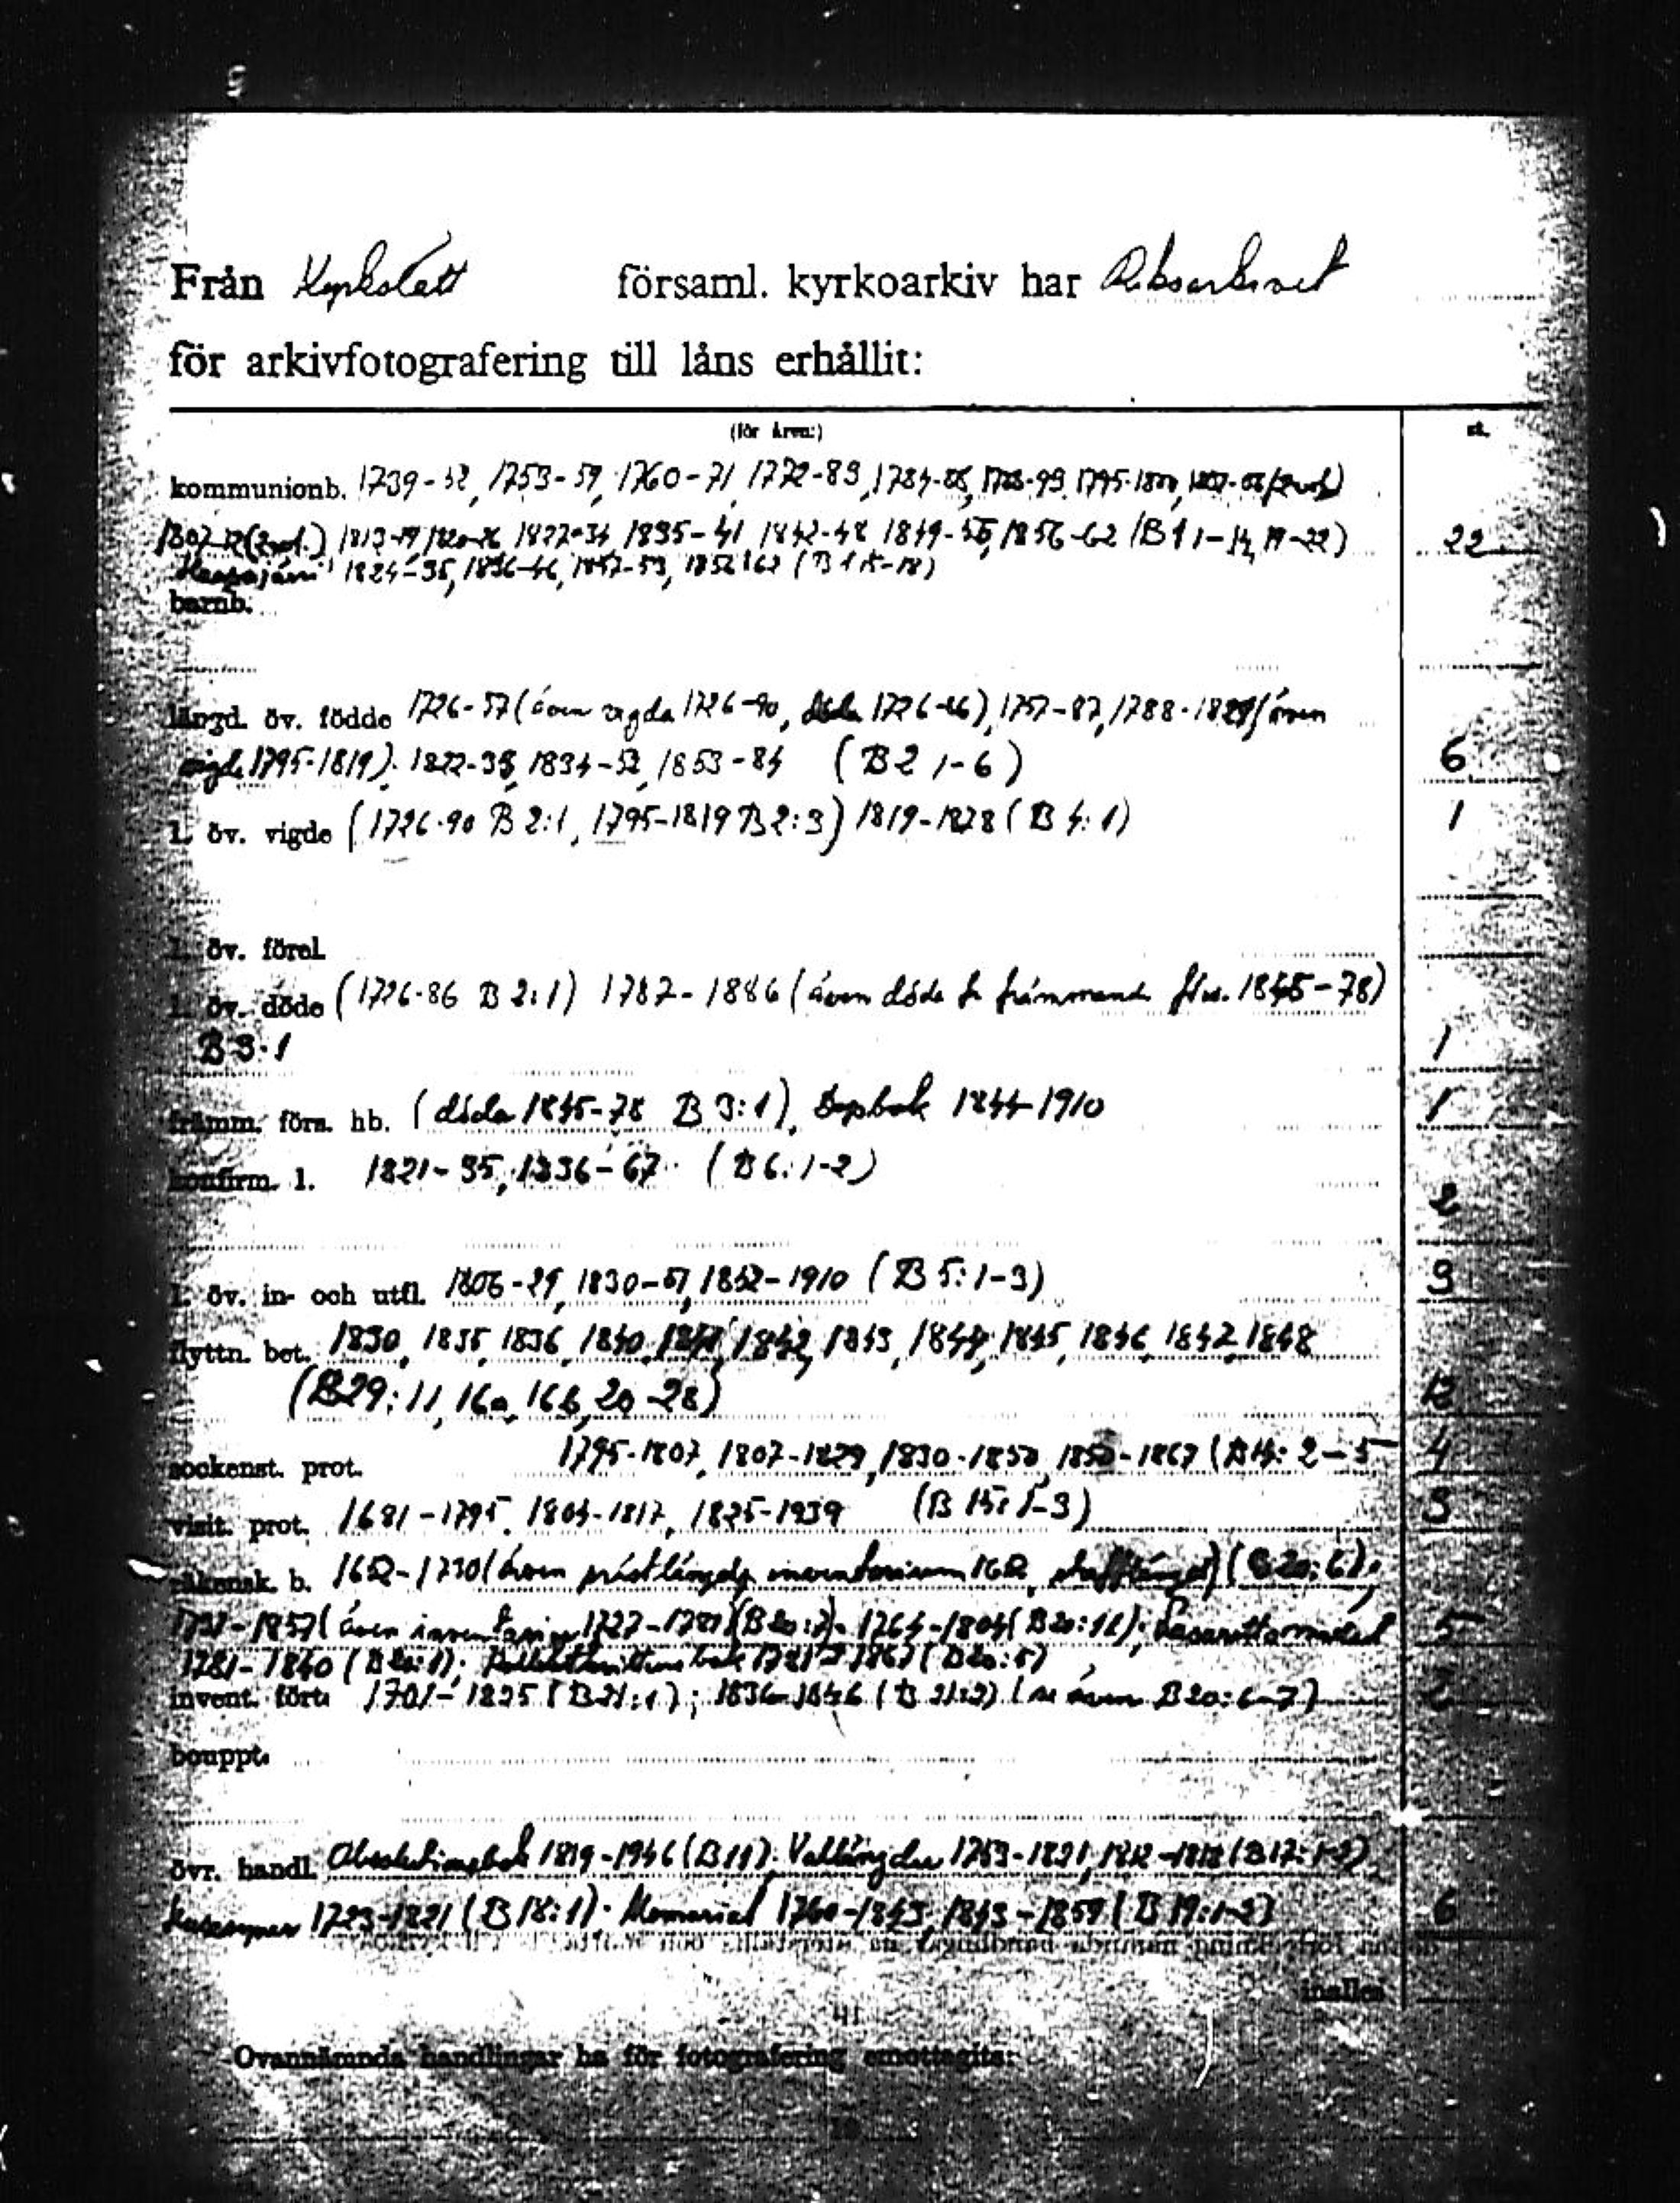 Från Kyrkslätt församl. kyrkoarkiv har Riksarkivet
för arkivfotografering till låns erhållit:
(för åren:) st.
kommunionb. 1739-52, 1753-59, 1760-71, 1772-83, 1784-88, 1788-93, 1795-1800, (2 vol.)
(2 vol.) 1813-19, 1820-26, 1827-34, 1835-41, 1842-48, 1849-55, 1856-62 (B 1 1-14, 19-22) 22
Haapajärvi 1824-35, 1836-46, 1847-53, (B 1 15-18)
barnb.
längd. öv. födde 1726-57 (även vigda 1726-90, döda 1726-86), 1757-87, 1788-1829 (även
vigde 1795-1819). 1822-33, 1834-52, 1853-84 (B 2 1-6) 6
l. öv. vigde (1726-90 B 2:1, 1795-1819 B 2:3) 1819-1878 (B 4:1) 1
l. öv. förel.
l. öv. döde (1726-86 B 2:1) 1787-1886 (även döde fr främmande förs. 1845-78)
B 3:1 1
främm. förs. hb. (döda 1845-78 B 3:1), Dopbok 1844-1910 1
konfirm. l. 1821-35, 1836-67 (B 6:1-2) 2
l. öv. in- och utfl. 1806-29, 1830-51, 1852-1910 (B 5:1-3) 3
flyttn. bet. 1830, 1835, 1836, 1840, 1841, 1842, 1843, 1844, 1845, 1846, 1847, 1848
(B29:11, 16a, 16b, 20-28) 12
sockenst. prot. 1795-1807, 1807-1829, 1830-1850, 1850-1867 (B 14: 2-5 4
visit. prot. 1681-1795, 1804-1817, 1825-1939 (B 15: 1-3) 3
räkensk. b. 1652-1730 (även inventarium (B 20:6);
1731-1857 (även 1727-1781) (B 20:7). 1764-1804 (B 20:11); 5
1781-1840 (B 20:1); (B 20:5)
invent. fört. 1701-1825 (B 21:1); 1836-1846 (B 21:2) (se även B 20:6-7) 2
bouppt.
övr. handl. Absolutionsbok 1819-1946 (B 11). Vallängder 1753-1821, (B 17:1-2)
1723-1821 (B 18:1). Memorial 1760-1843, 1843-1859 (B 19:1-2) 6
inalles
Ovannämnda handlingar ha för fotografering emottagits: